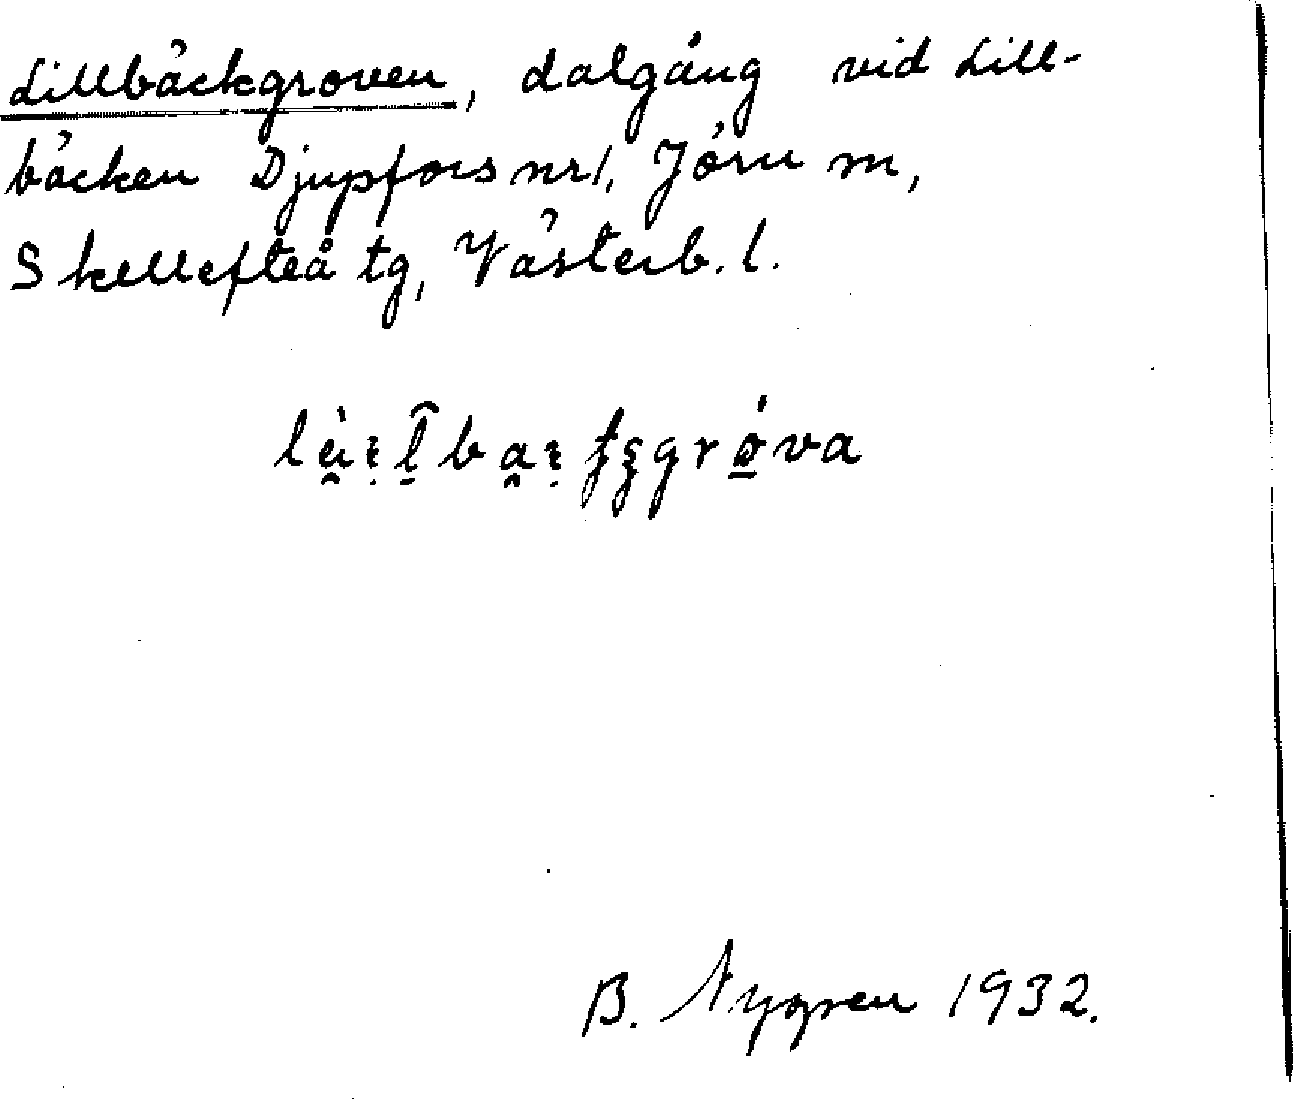 Lillbäckgroven, dalgång vid Lill-
bäcken Djupfors nr 1, Jörn sn,
Skellefteå tg, Västerb. l.
B. Nygren 1932.